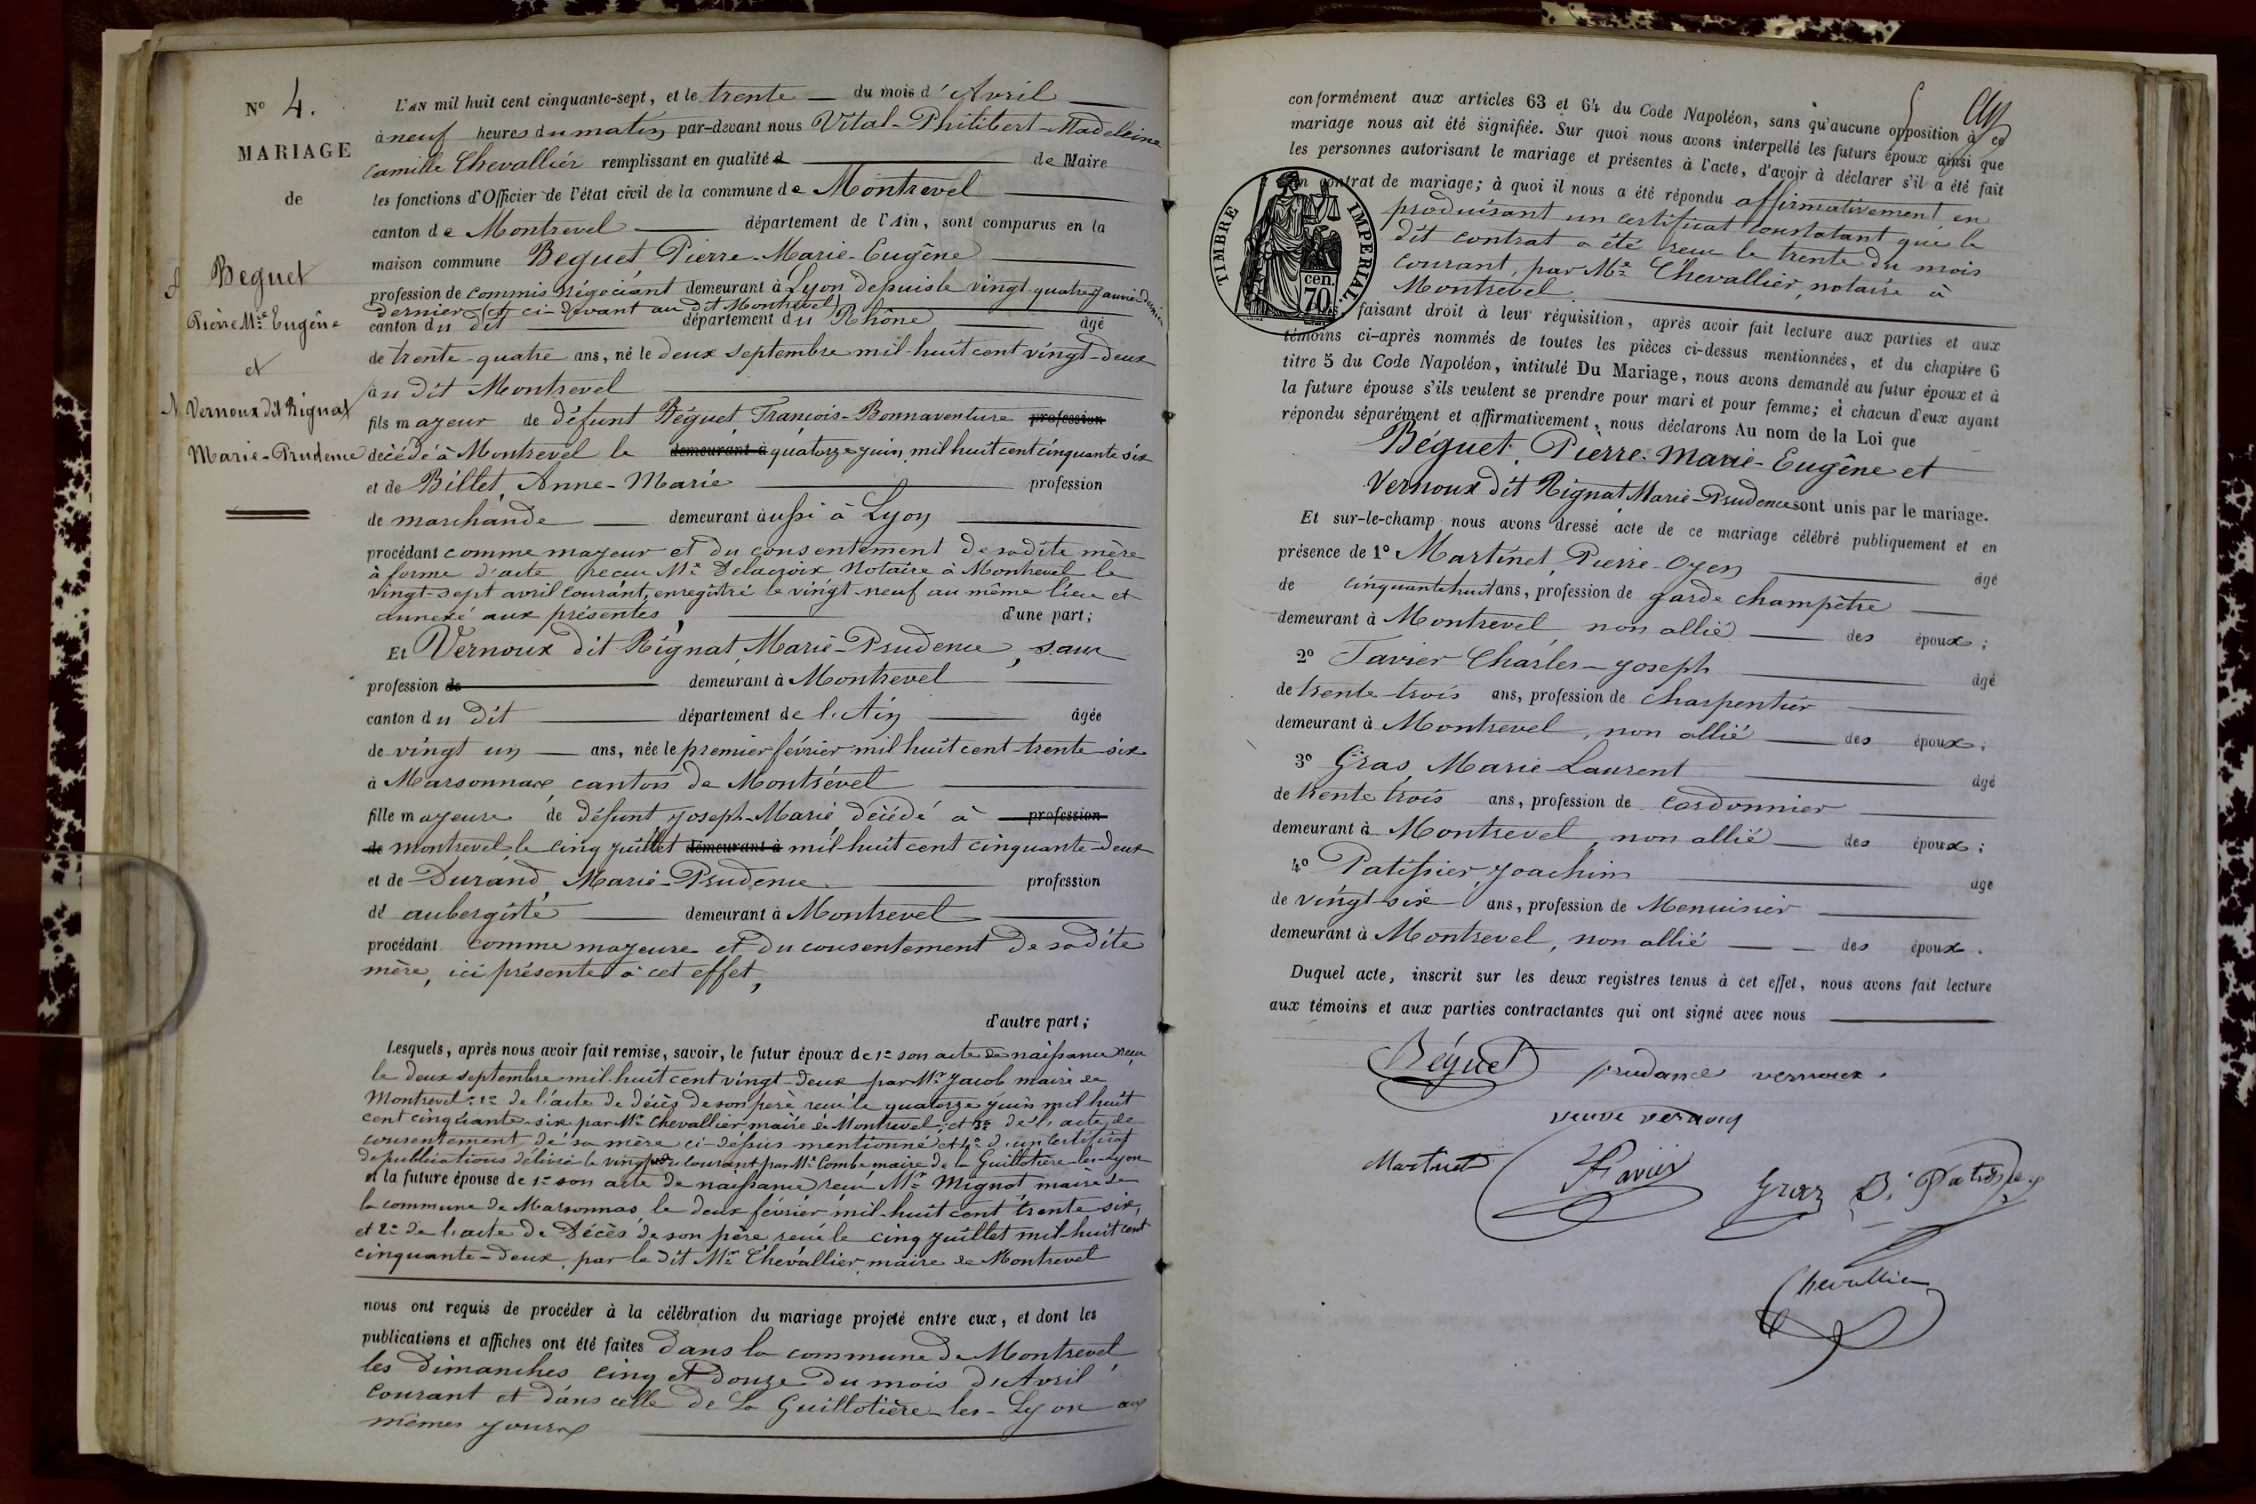 N° 4.
MARIAGE
de
Beguet
Pierre Mie Eugène
et
Vernoux dit Rignat
Marie-Prudence
L'AN mil huit cent cinquante-sept, et le trente du mois d'Avril
à neuf heures du matin par-devant nous Vital-Philibert-Madeleine
Camille Chevallier remplissant en qualité de Maire
les fonctions d'Officier de l'état civil de la commune de Montrevel
canton de Montrevel département de l'Ain, sont comparus en la
maison commune Beguet Pierre-Marie-Eugène
profession de commis négociant demeurant à Lyon depuis le vingt quatre janvier dernier
dernier (et ci-devant au dit Montrevel)
canton du dit département du Rhône âgé
de trente-quatre ans, né le deux Septembre mil-huit cent vingt-deux
au dit Montrevel
fils majeur de défunt Béguet, François-Bonnaventure profession
décédé à Montrevel le demeurant à quatorze juin mil huit cent cinquante six
et de Billet, Anne-Marie profession
de marchande demeurant aussi à Lyon
procédant comme majeur et du consentement de sadite mère
à forme d'acte reçu Me Delacroix Notaire à Montrevel le
vingt-sept avril courant, enregistré le vingt-neuf au même lieu et
annexé aux présentes, d'une part;
Et Vernoux dit Rignat, Marie-Prudence, sans
profession de demeurant à Montrevel
canton du dit département de l'Ain âgée
de vingt un ans, née le premier février mil huit cent trente-six
à Marsonnax, canton de Montrevel
fille majeure de défunt Joseph-Marie décédé à profession
de montrevel le cinq juillet demeurant à mil-huit cent cinquante-deux
et de Durand, Marie-Prudence profession
de aubergiste demeurant à Montrevel
procédant comme majeure et du consentement de sadite
mère, ici présente à cet effet,
d'autre part;
Lesquels, après nous avoir fait remise, savoir, le futur époux de 1° son acte de naissance reçu
le deux septembre mil-huit cent vingt-deux par Mr Jacob maire de
Montrevel; 2° de l'acte de décès de son père reçu le quatorze juin mil huit
cent cinquante-six par Mr Chevallier maire de Montrevel; et 3° de l'acte de
consentement de sa mère ci-dessus mentionné et 4° d'un certificat
de publications délivré le courant par Mr Combe maire de la Guillotière-les-Lyon
et la future épouse de 1° son acte de naissance reçu Mr Mignot maire de
la commune de Marsonnas, le deux février mil-huit cent trente six,
et 2° de l'acte de Décès de son père reçu le cinq juillet mil-huit cent
cinquante-deux, par le dit Mr Chevallier, maire de Montrevel
nous ont requis de procéder à la célébration du mariage projeté entre eux, et dont les
publications et affiches ont été faites dans la commune de Montrevel
les dimanches cinq et douze du mois d'Avril
courant et dans celle de La Guillotière-les-Lyon aux
mêmes jours
conformément aux articles 63 et 64 du Code Napoléon, sans qu'aucune opposition à ce
mariage nous ait été signifiée. Sur quoi nous avons interpellé les futurs époux ainsi que
les personnes autorisant le mariage et présentes à l'acte, d'avoir à déclarer s'il a été fait
un contrat de mariage; à quoi il nous a été répondu affirmativement en
produisant un certificat constatant que le
dit contrat a été reçu le trente du mois
courant, par Me Chevallier, notaire à
Montrevel
TIMBRE IMPERIAL.
cen.
70
faisant droit à leur réquisition, après avoir fait lecture aux parties et aux
témoins ci-après nommés de toutes les pièces ci-dessus mentionnées, et du chapitre 6
titre 5 du Code Napoléon, intitulé Du Mariage, nous avons demandé au futur époux et à
la future épouse s'ils veulent se prendre pour mari et pour femme; et chacun d'eux ayant
répondu séparément et affirmativement, nous déclarons Au nom de la Loi que
Béguet, Pierre-Marie-Eugène et
Vernoux dit Rignat, Marie-Prudence sont unis par le mariage.
Et sur-le-champ nous avons dressé acte de ce mariage célébré publiquement et en
présence de 1° Martinet, Pierre-Oyen âgé
de cinquante huit ans, profession de garde champêtre
demeurant à Montrevel non allié des époux;
2° Favier Charles-Joseph âgé
de trente-trois ans, profession de charpentier
demeurant à Montrevel, non allié des époux;
3° Gras, Marie-Laurent âgé
de trente trois ans, profession de cordonnier
demeurant à Montrevel, non allié des époux;
4° Patissier, Joachim âgé
de vingt-six ans, profession de Menuisier
demeurant à Montrevel, non allié des époux.
Duquel acte, inscrit sur les deux registres tenus à cet effet, nous avons fait lecture
aux témoins et aux parties contractantes qui ont signé avec nous
Béguet prudance vernoux.
veuve vernoux
Martinet Favier Gras Patissier
Chevallier